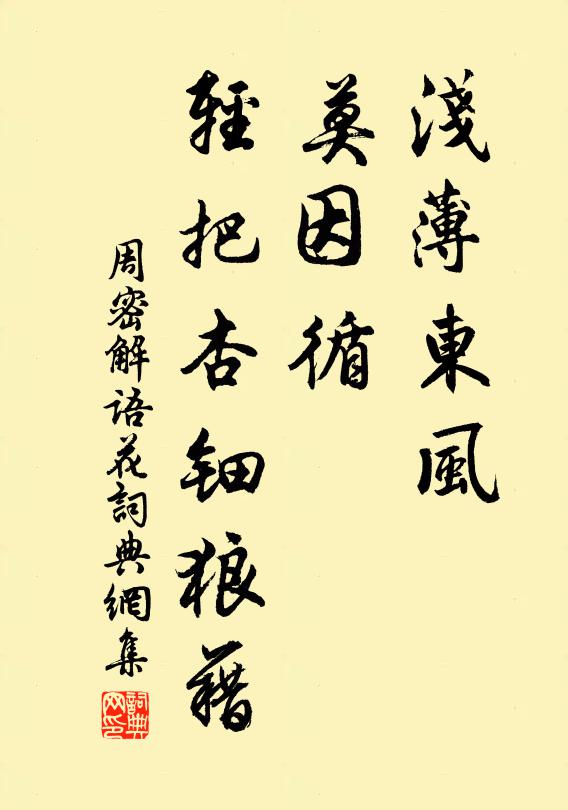 淺薄東風
莫因循
輕把杏鈿狼藉
周密解語花詞典網集
詞典網印